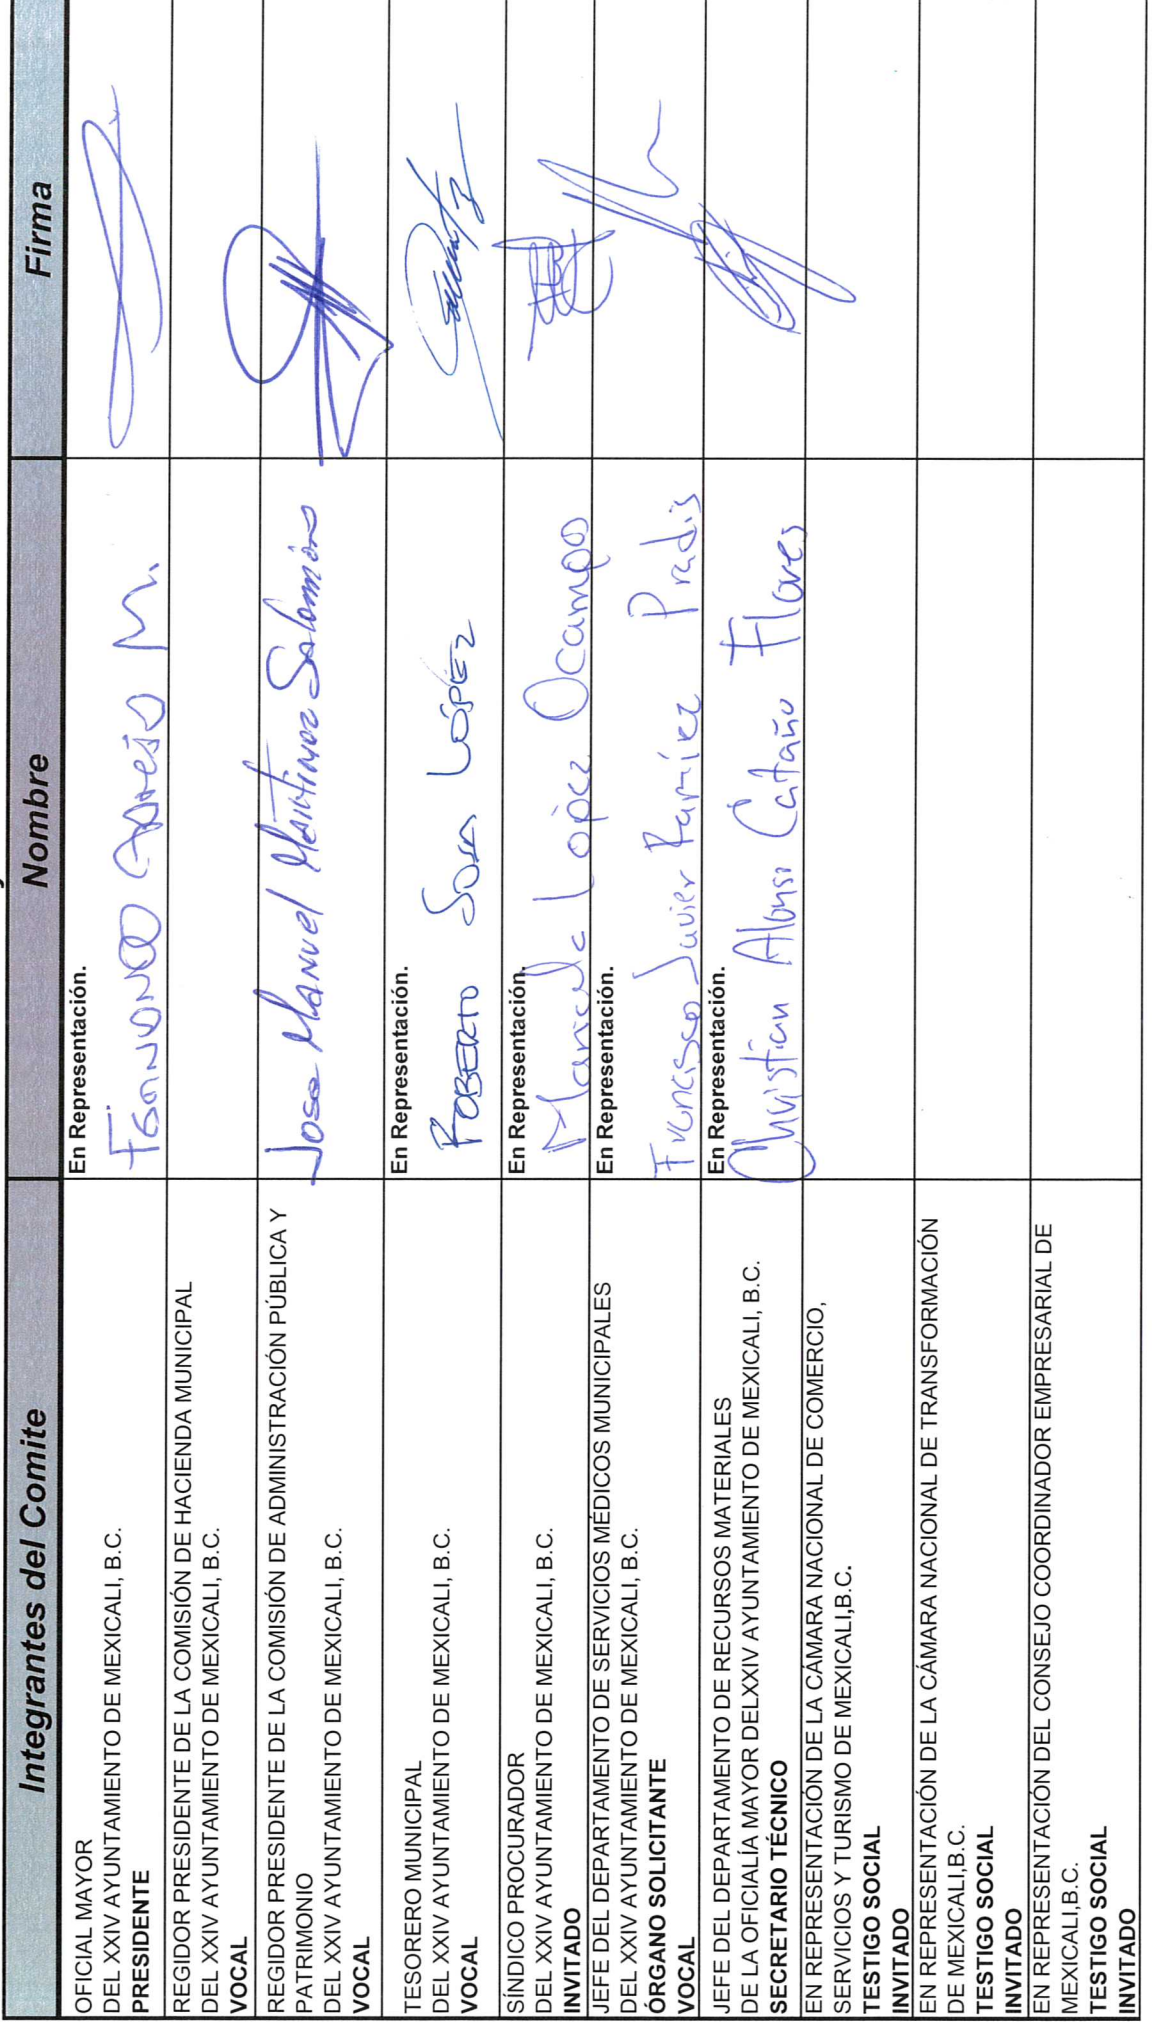 Integrantes del Comite
Nombre
Firma
OFICIAL MAYOR
DEL XXIV AYUNTAMIENTO DE MEXICALI, B.C.
PRESIDENTE
En Representación.
REGIDOR PRESIDENTE DE LA COMISIÓN DE HACIENDA MUNICIPAL
DEL XXIV AYUNTAMIENTO DE MEXICALI, B.C.
VOCAL
REGIDOR PRESIDENTE DE LA COMISIÓN DE ADMINISTRACIÓN PÚBLICA Y
PATRIMONIO
DEL XXIV AYUNTAMIENTO DE MEXICALI, B.C.
VOCAL
Jose Manuel Martinez Salomón
TESORERO MUNICIPAL
DEL XXIV AYUNTAMIENTO DE MEXICALI, B.C.
VOCAL
En Representación.
ROBERTO SOSA LÓPEZ
SÍNDICO PROCURADOR
DEL XXIV AYUNTAMIENTO DE MEXICALI, B.C.
INVITADO
En Representación.
Marcela López Ocampo
JEFE DEL DEPARTAMENTO DE SERVICIOS MÉDICOS MUNICIPALES
DEL XXIV AYUNTAMIENTO DE MEXICALI, B.C.
ÓRGANO SOLICITANTE
VOCAL
En Representación.
Francisco Javier Ramírez Pradis
JEFE DEL DEPARTAMENTO DE RECURSOS MATERIALES
DE LA OFICIALÍA MAYOR DELXXIV AYUNTAMIENTO DE MEXICALI, B.C.
SECRETARIO TÉCNICO
En Representación.
Christian Alonso Cataño Flores
EN REPRESENTACIÓN DE LA CÁMARA NACIONAL DE COMERCIO,
SERVICIOS Y TURISMO DE MEXICALI,B.C.
TESTIGO SOCIAL
INVITADO
EN REPRESENTACIÓN DE LA CÁMARA NACIONAL DE TRANSFORMACIÓN
DE MEXICALI,B.C.
TESTIGO SOCIAL
INVITADO
EN REPRESENTACIÓN DEL CONSEJO COORDINADOR EMPRESARIAL DE
MEXICALI,B.C.
TESTIGO SOCIAL
INVITADO